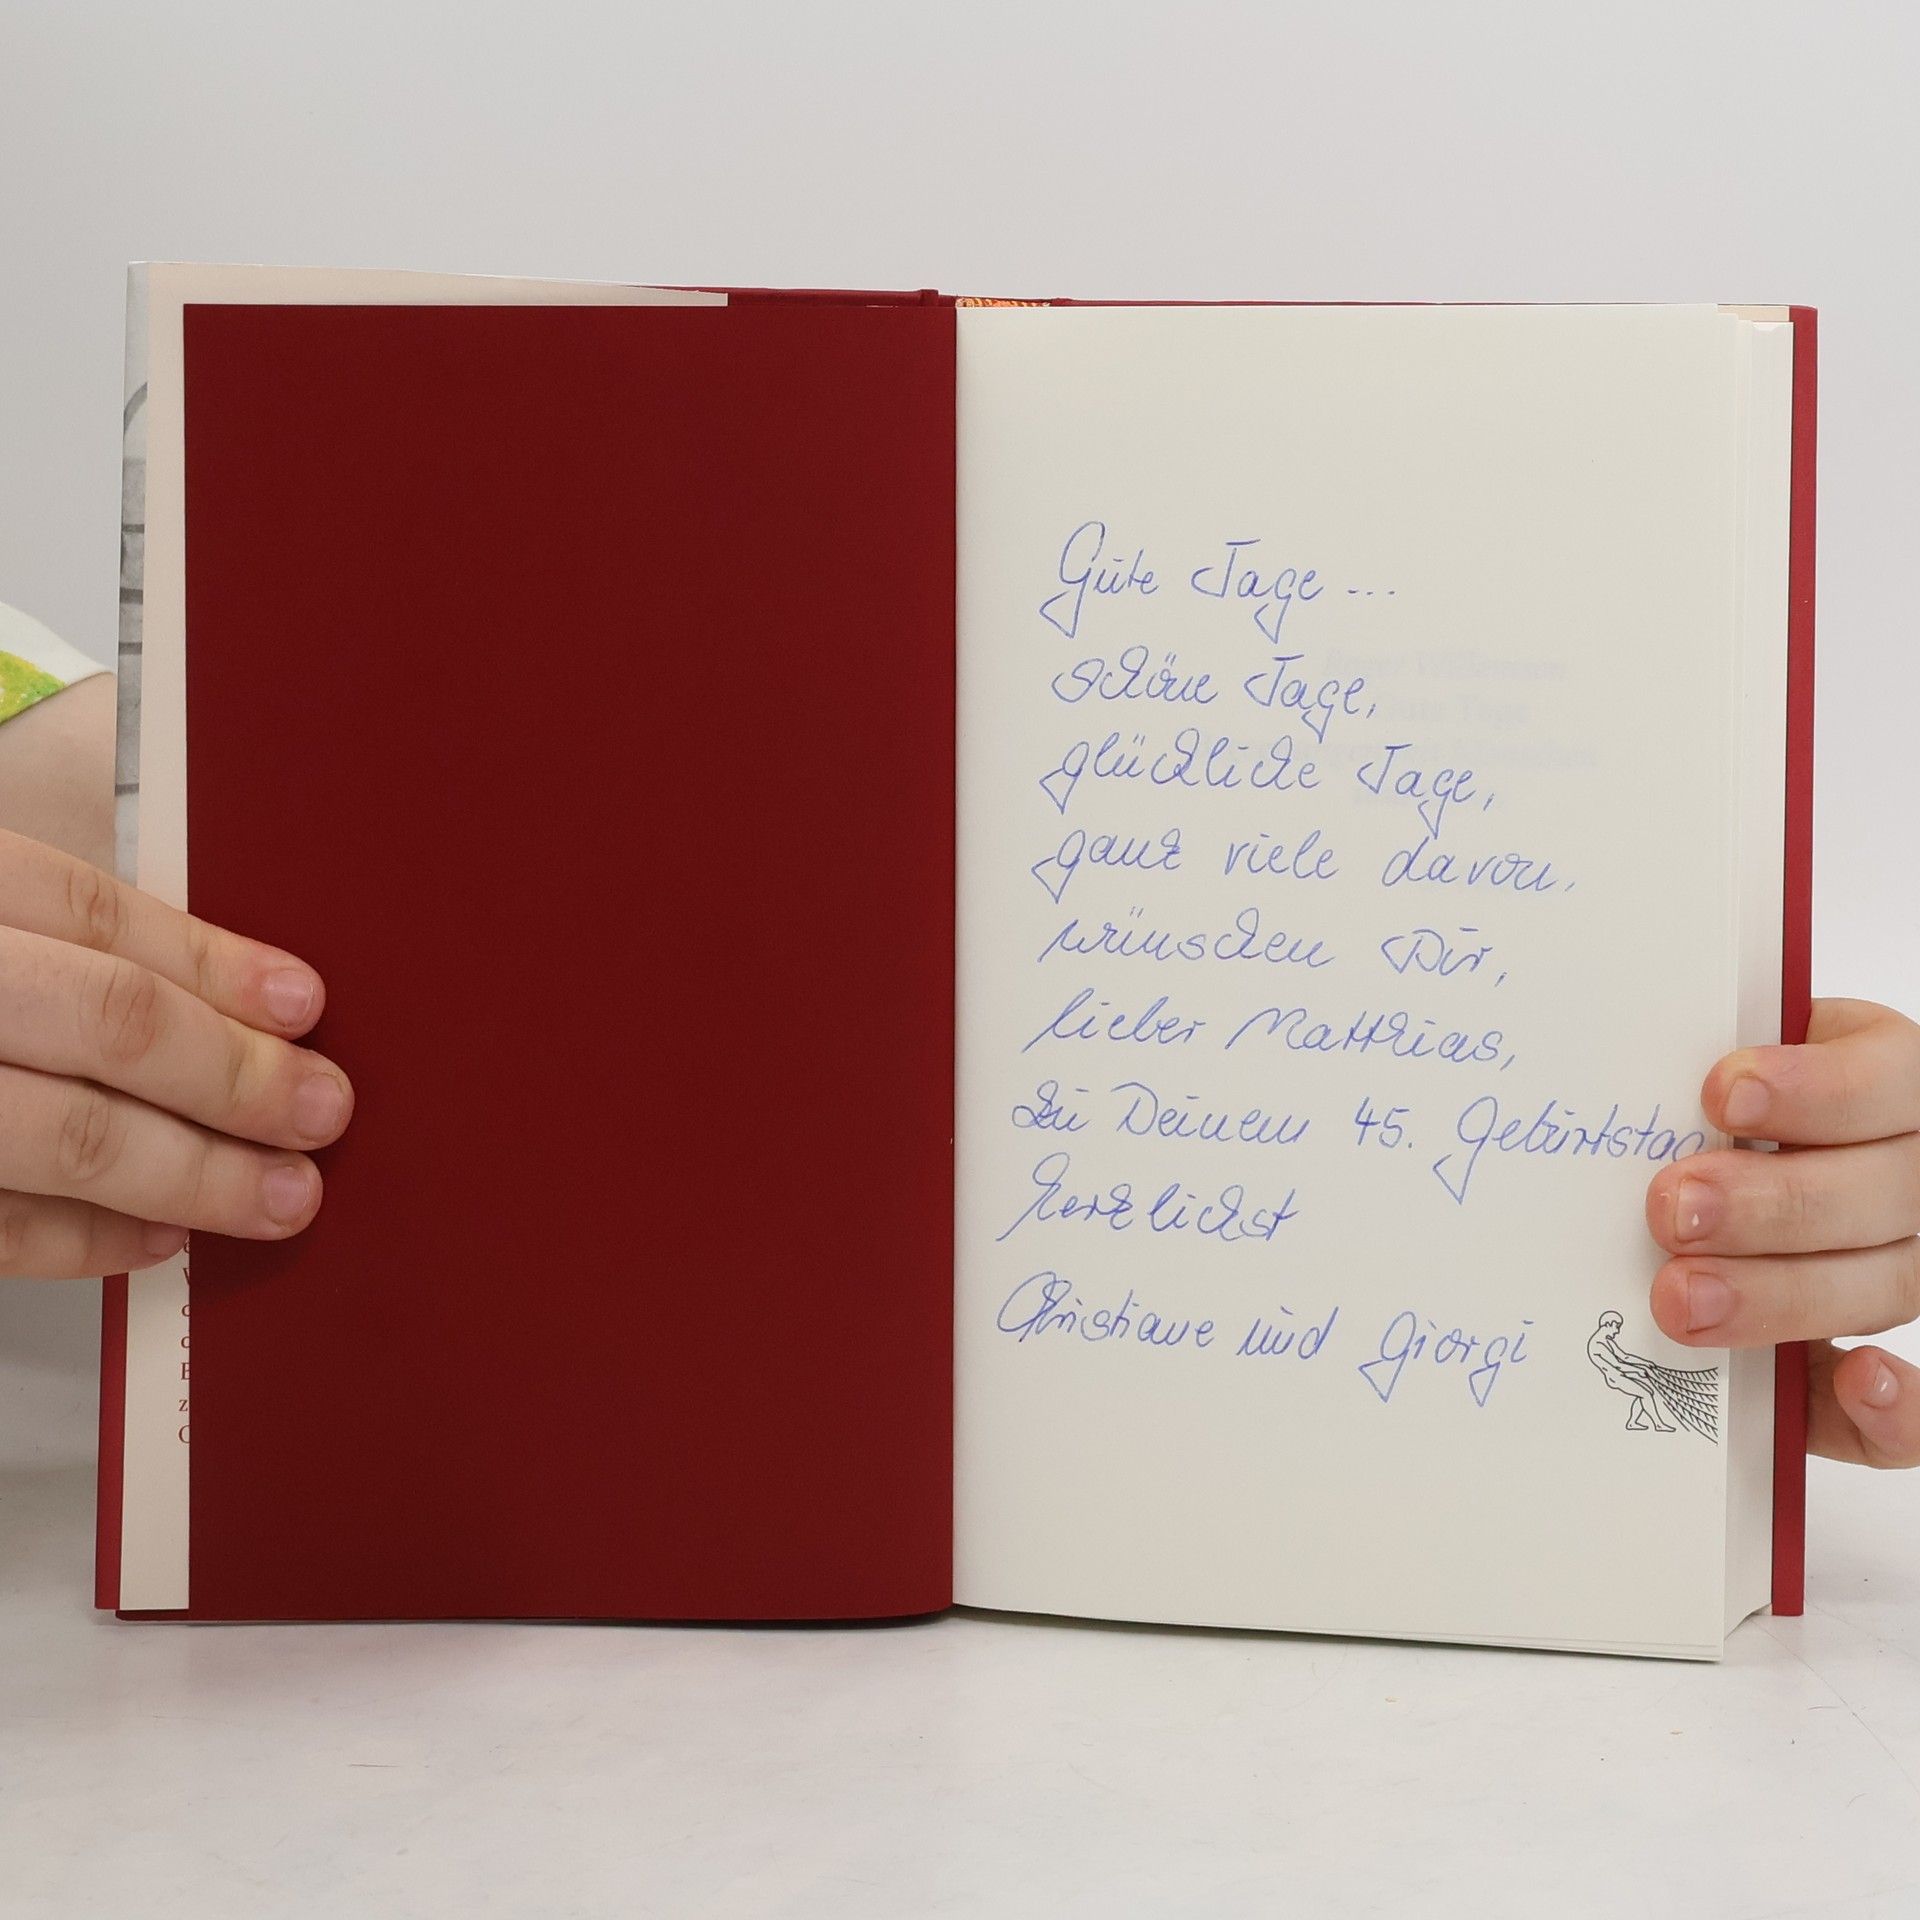 Gute Tage ...
schöne Tage,
glückliche Tage,
ganz viele davon,
wünschen Dir,
lieber Matthias,
zu Deinem 45. Geburtstag
herzlichst
Christiane und Giorgi